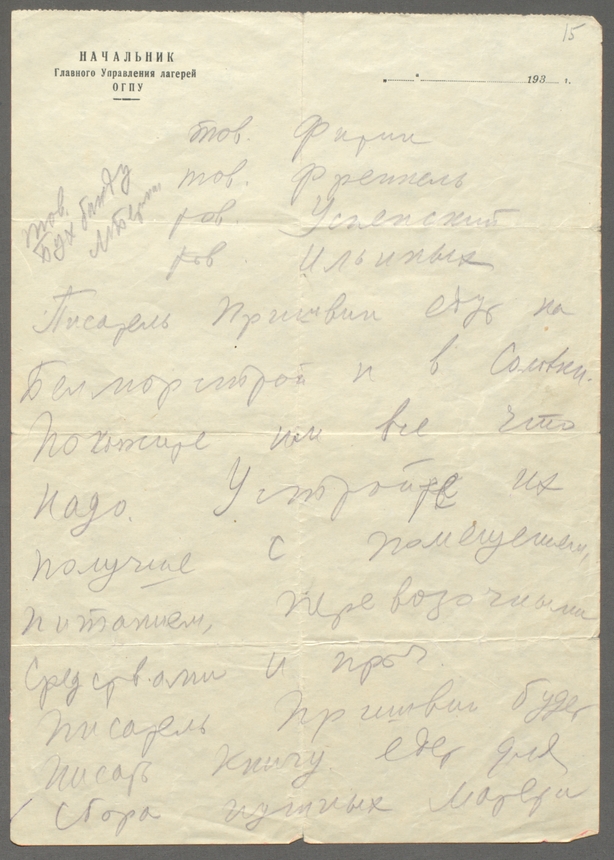 15
НАЧАЛЬНИК
Главного Управления лагерей
ОГПУ
193 г.
тов. Фирин
тов. Френкель
тов. Успенский
тов. Ильиных
тов.
Писатель Пришвин едут на
Белморстрой и в Соловки.
Покажите им все что
надо. Устройте их
получше с помещением,
питанием, перевозочными
средствами и проч.
Писатель Пришвин будет
писать книгу едет для
сбора нужных матери